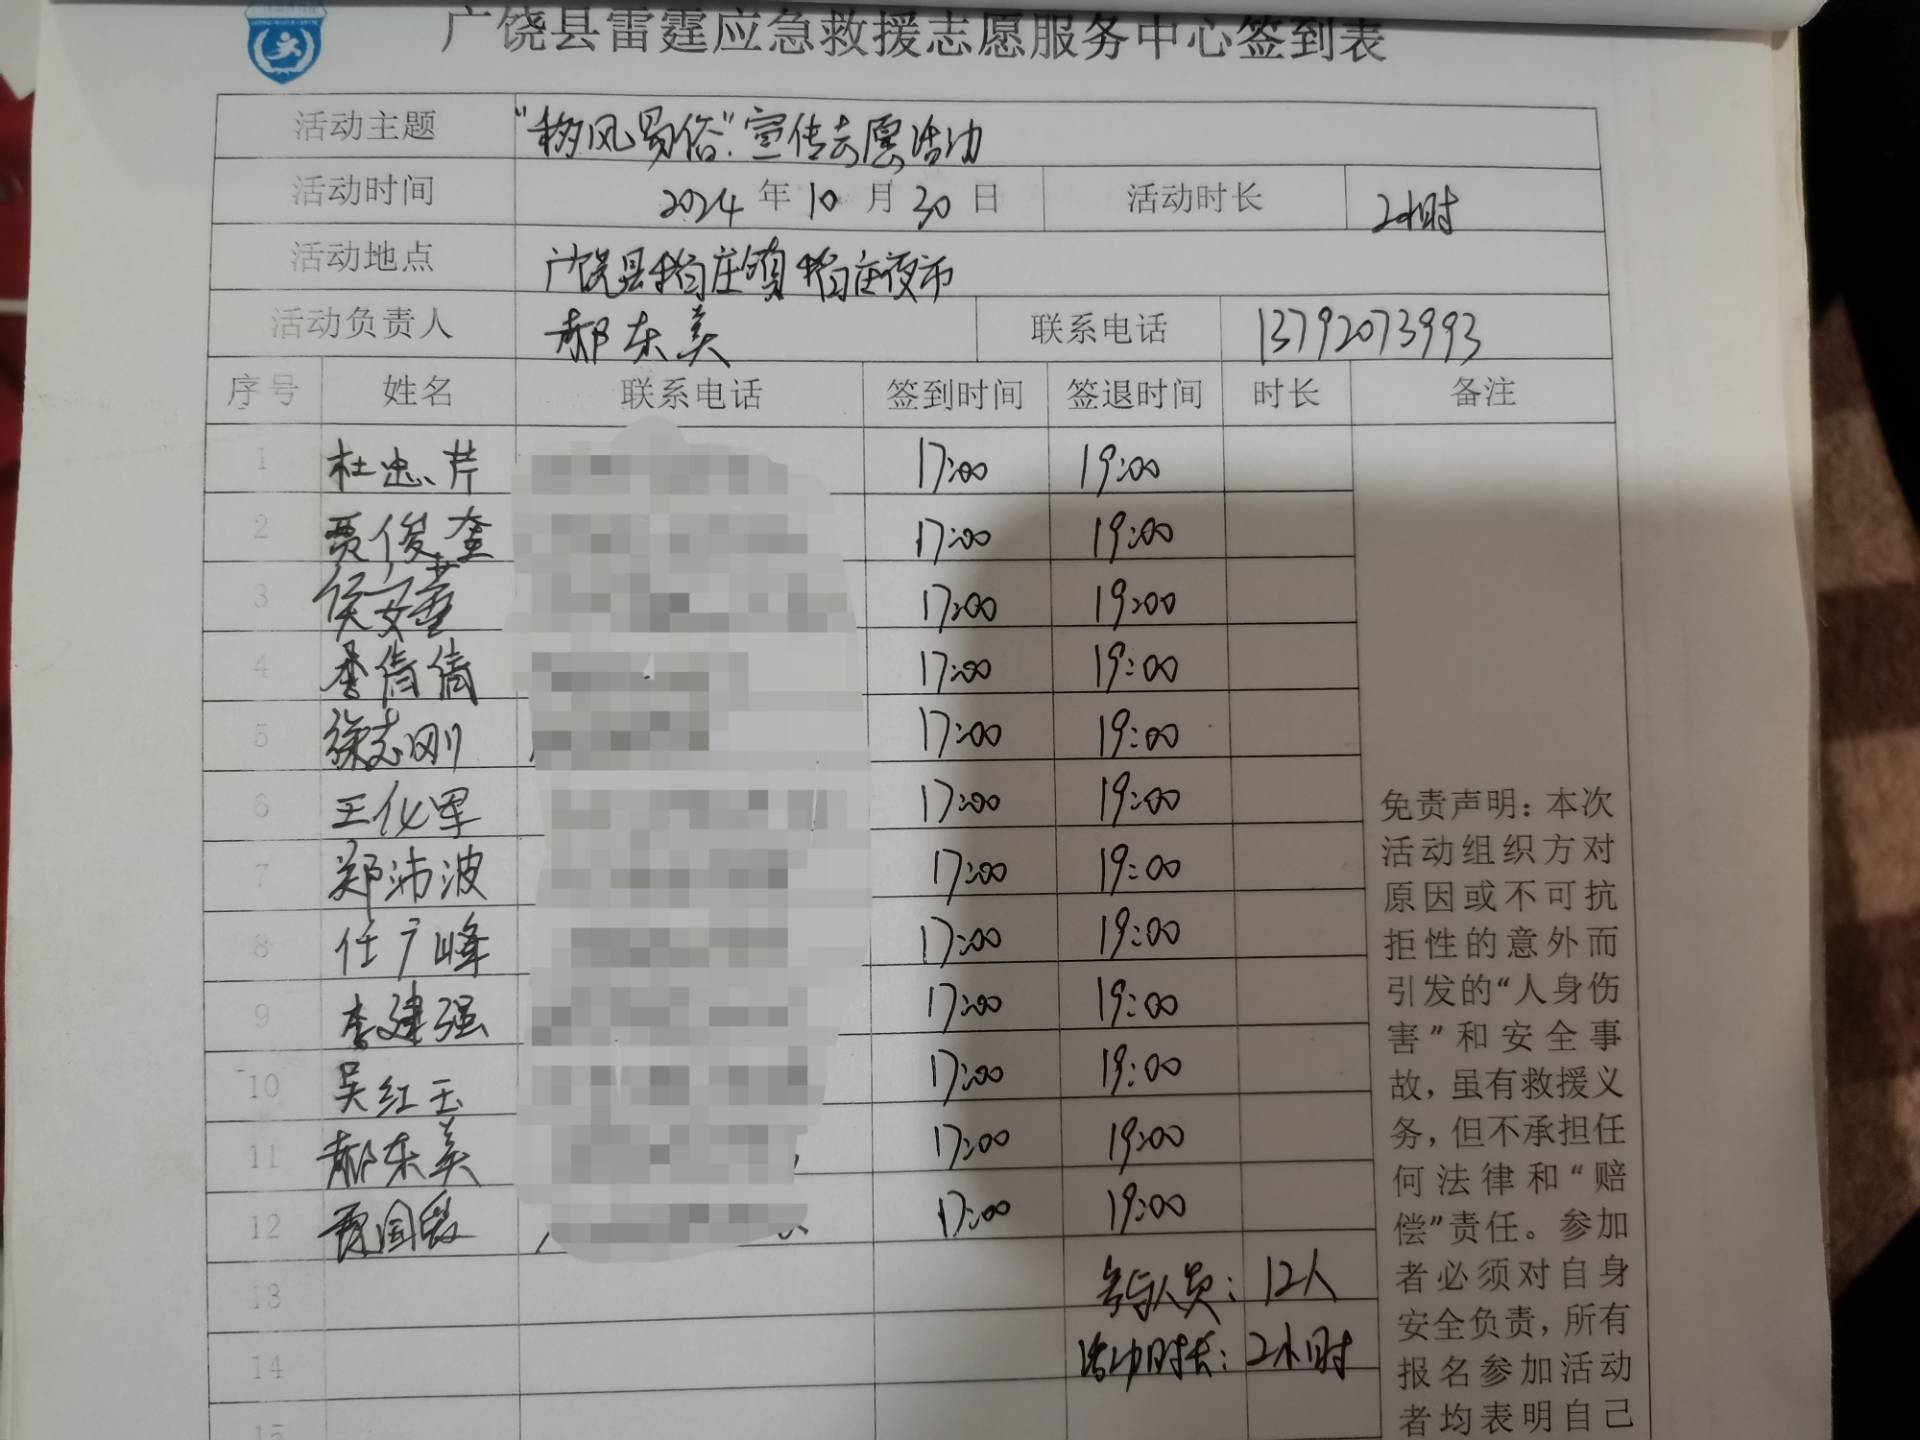 广饶县雷霆应急救援志愿服务中心签到表
活动主题 “移风易俗”宣传志愿活动
活动时间 2024 年 10 月 30 日 活动时长 2小时
活动地点 广饶县稻庄镇稻庄夜市
活动负责人 郝东美 联系电话 13792073993
序号 姓名 联系电话 签到时间 签退时间 时长 备注
1 杜忠芹 17:00 19:00
2 贾俊奎 17:00 19:00
3 侯安董 17:00 19:00
4 李倩倩 17:00 19:00
5 徐志刚 17:00 19:00
6 王仪军 17:00 19:00
7 郑沛波 17:00 19:00
8 任广峰 17:00 19:00
9 李建强 17:00 19:00
10 吴红玉 17:00 19:00
11 郝东美 17:00 19:00
12 贾国 17:00 19:00
13 参与人员：12人
14 活动时长：2小时
15
免责声明：本次
活动组织方对
原因或不可抗
拒性的意外而
引发的“人身伤
害”和安全事
故，虽有救援义
务，但不承担任
何法律和“赔
偿”责任。参加
者必须对自身
安全负责，所有
报名参加活动
者均表明自己